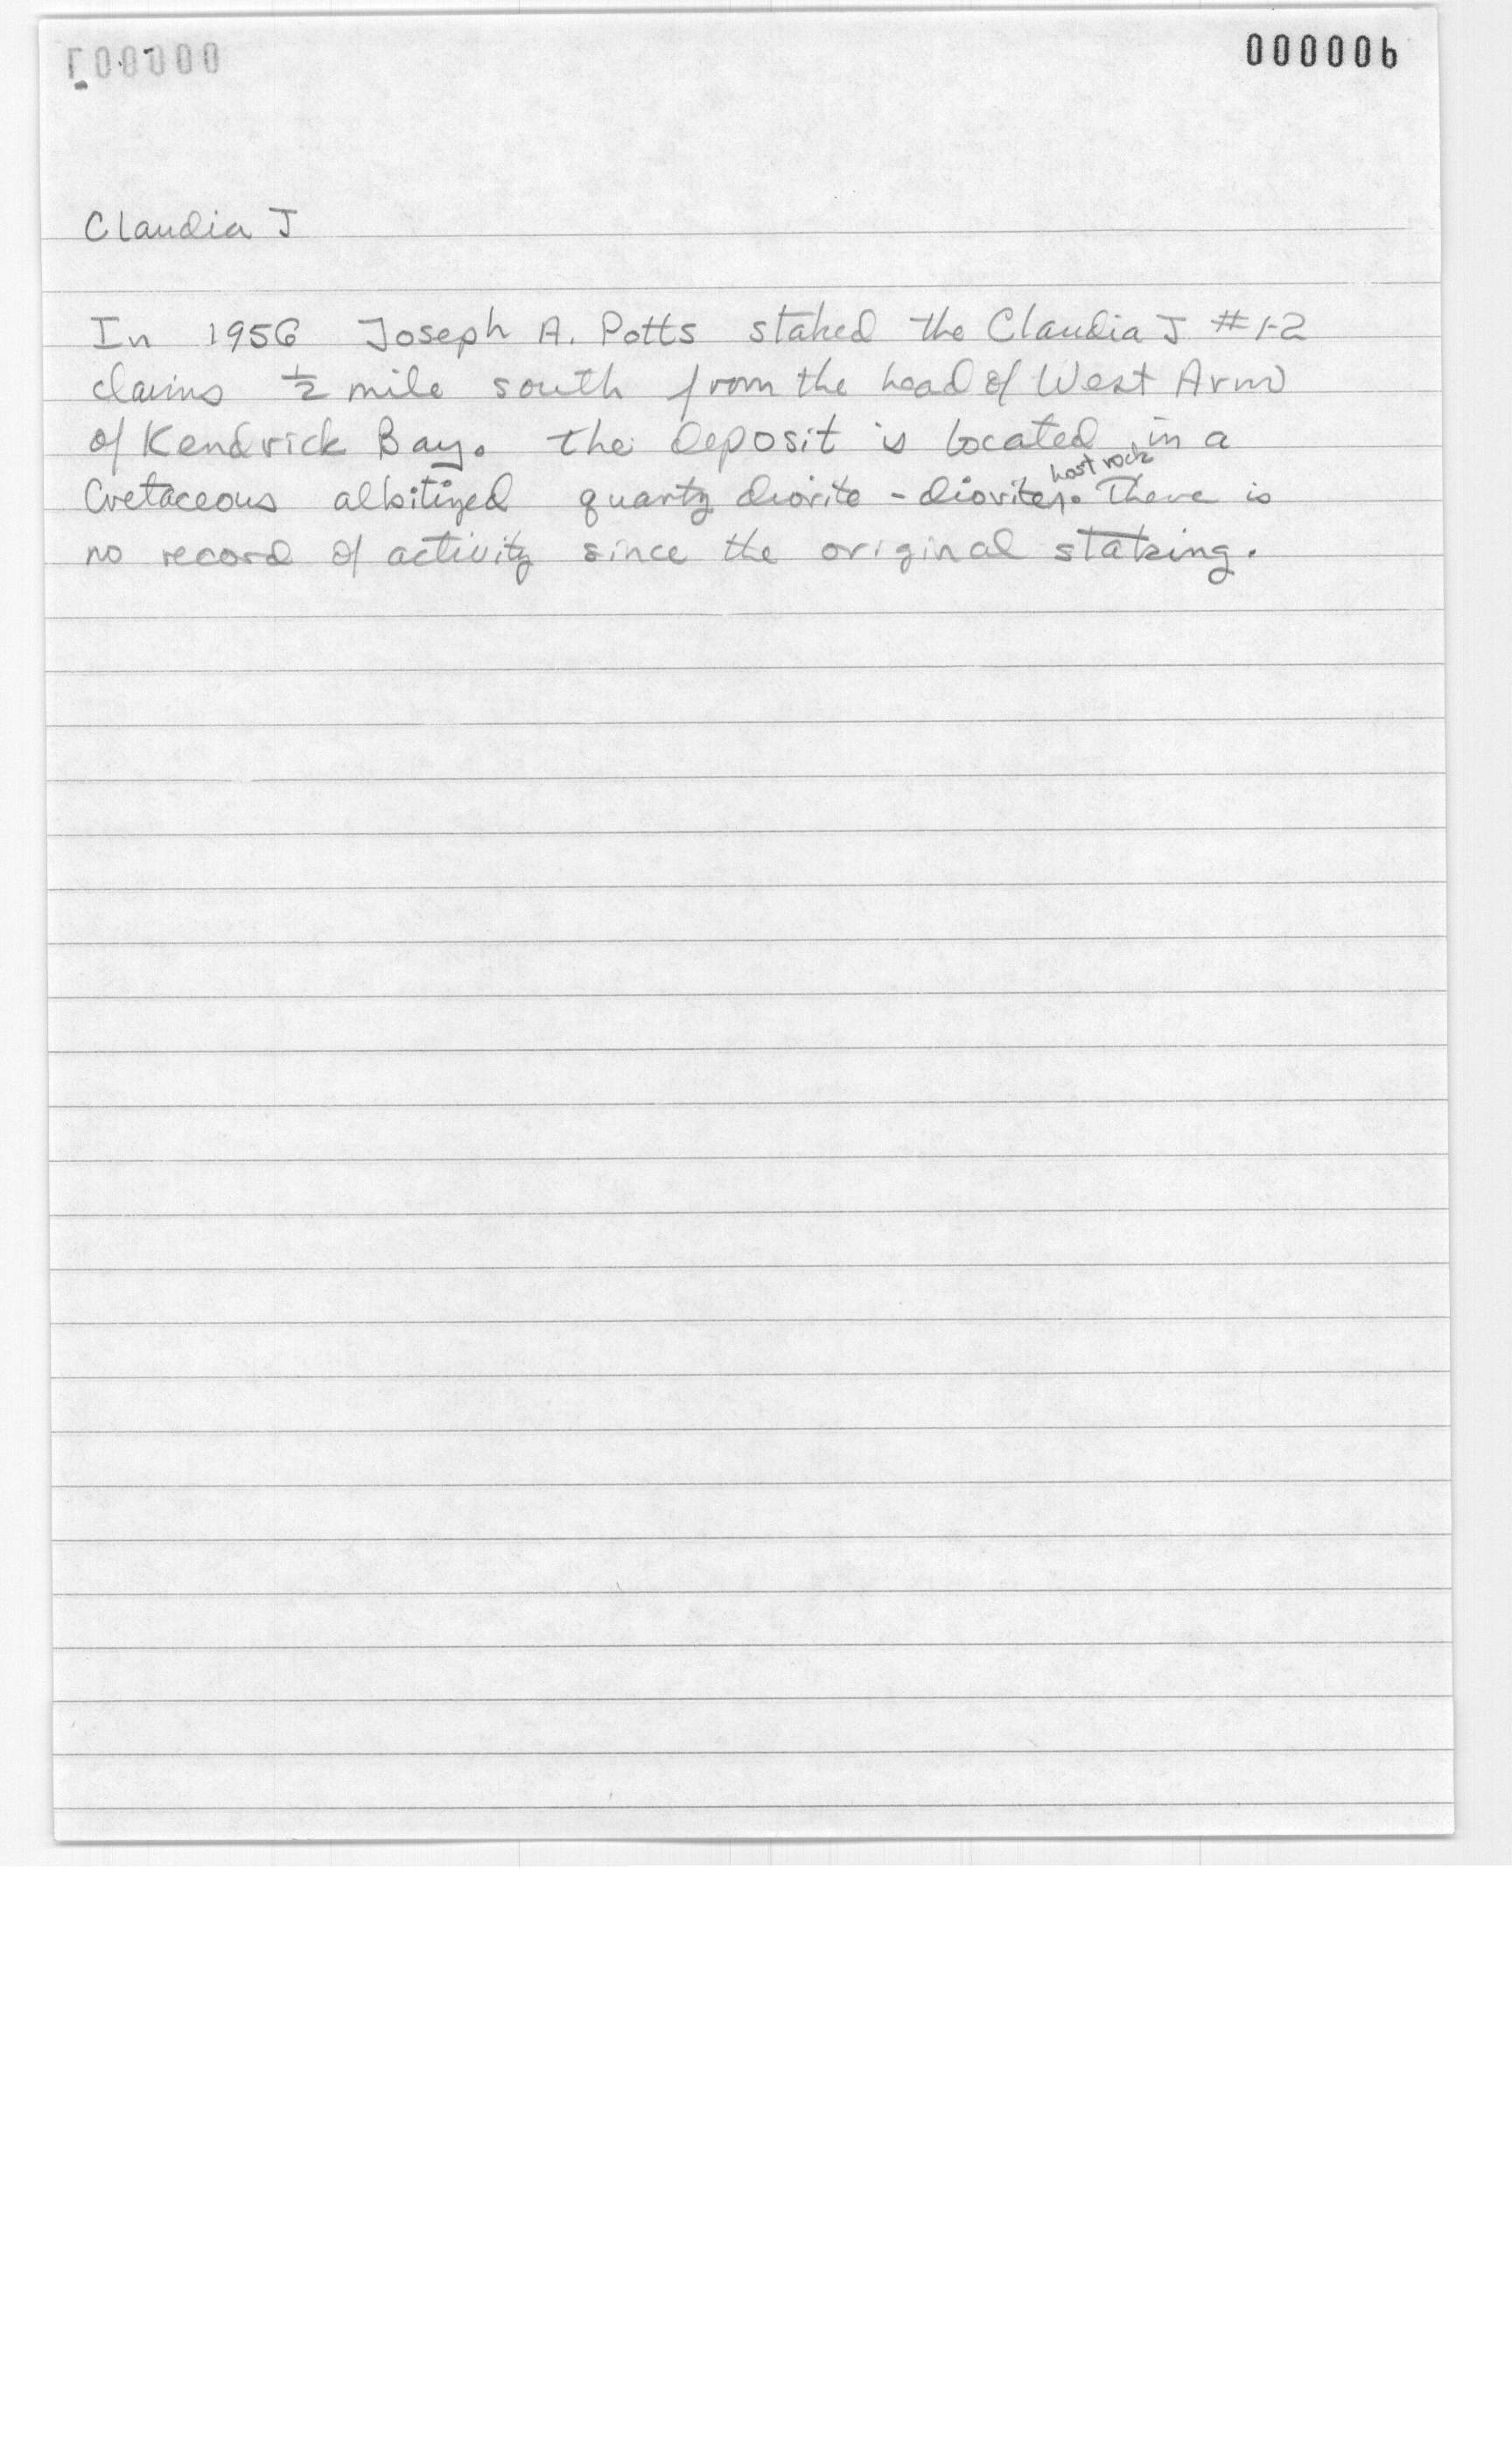 000006
Claudia J
In 1956 Joseph A. Potts staked the Claudia J #1-2
claims ½ mile south from the head of West Arm
of Kendrick Bay. The deposit is located in a
host rock
Cretaceous albitized quartz diorite - diorite. There is
no record of activity since the original staking.